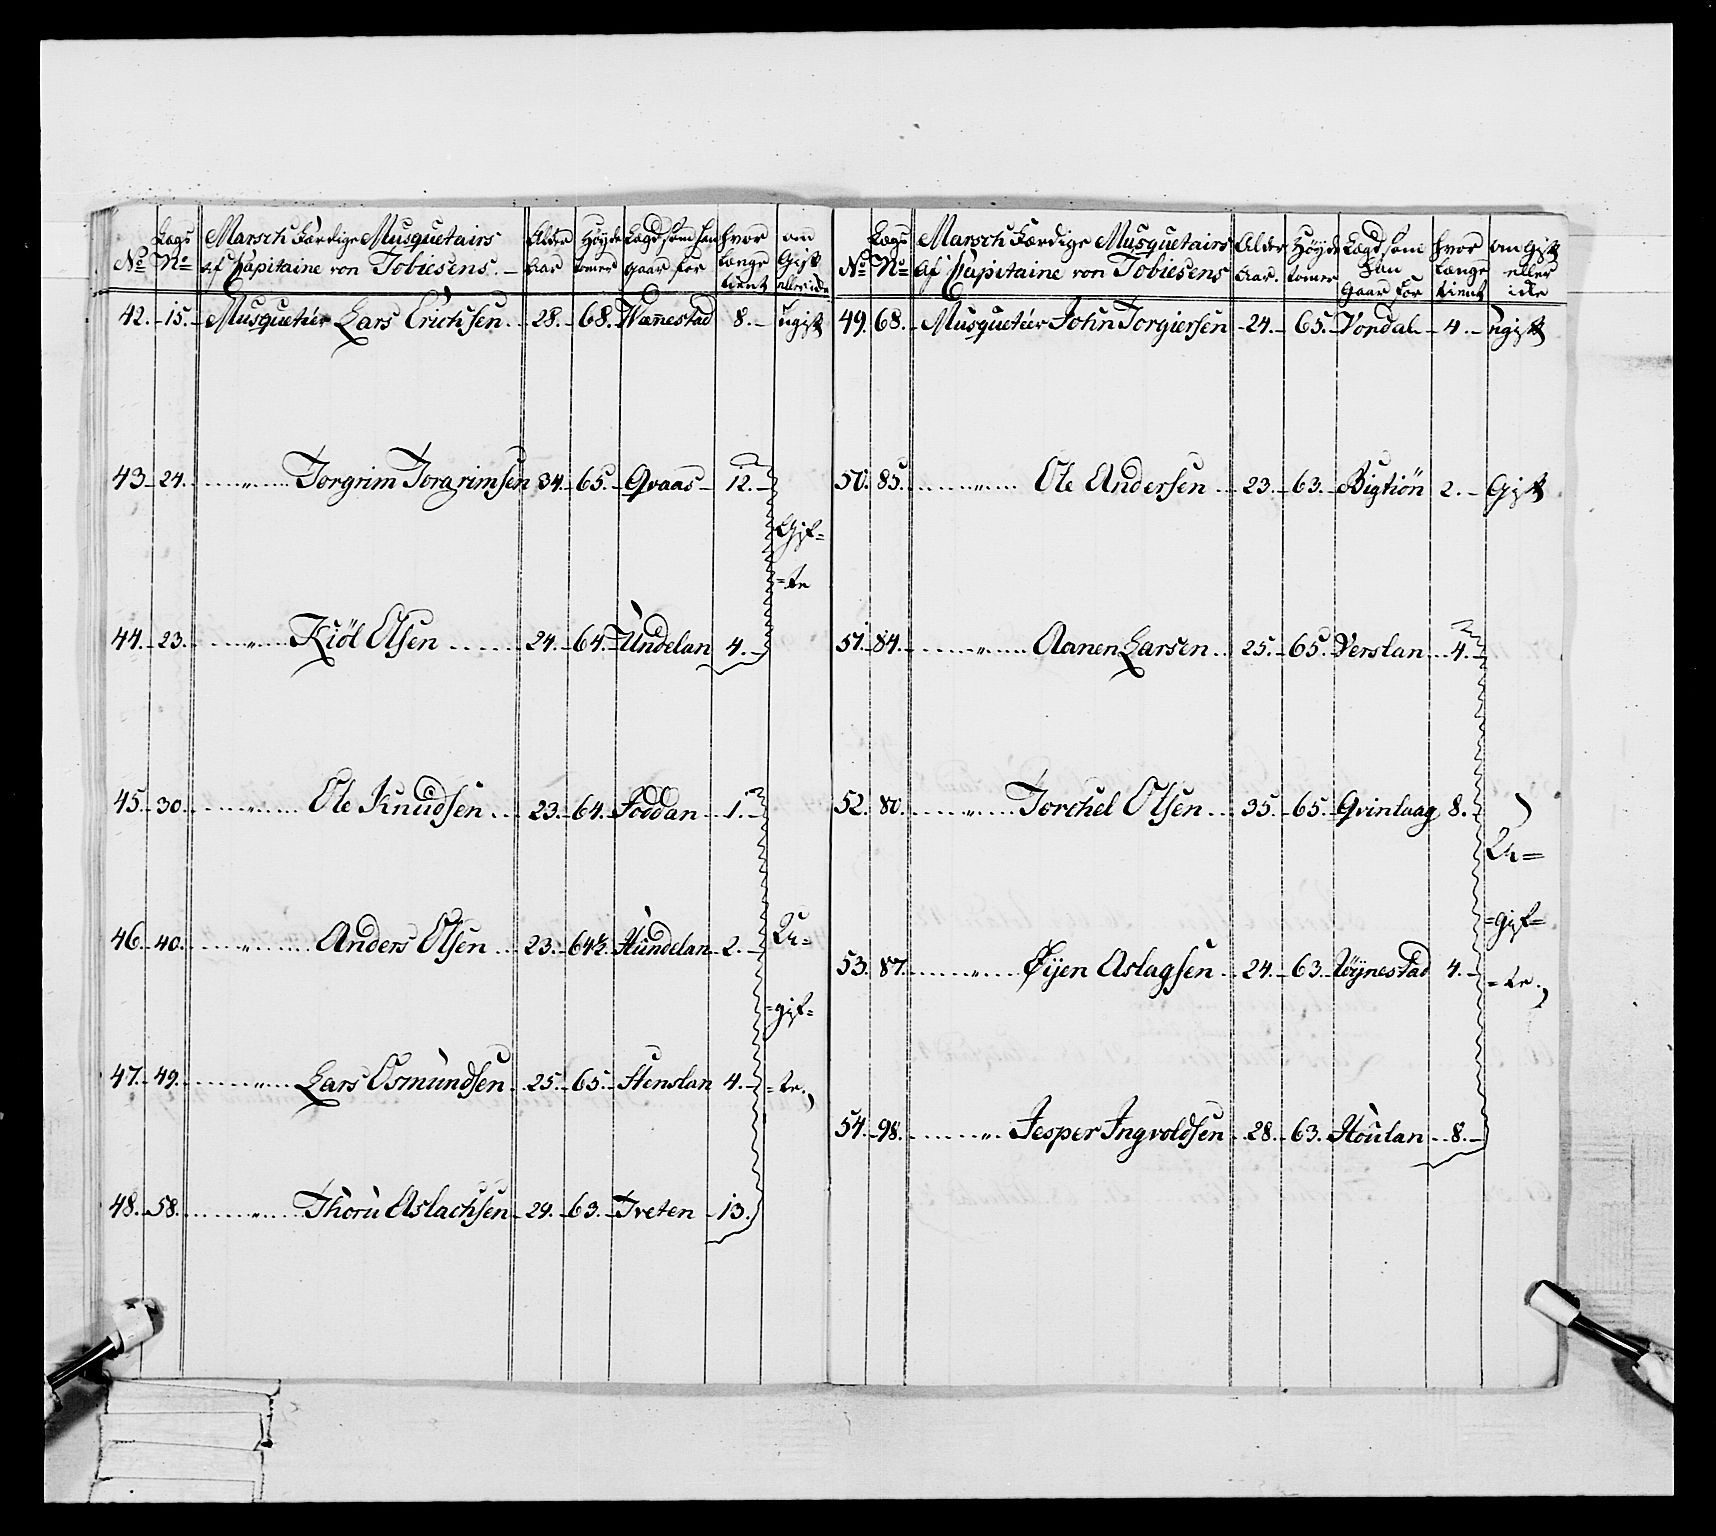 No Lægs No Marsch Færdige Musquetairs af Capitaine von Tobiesens. Alder Aar Høyde tomer Lægd som han Gaar for hvor længe tient om Gift eller icke
42. 15. Musqueteer Lars Erichsen 28. 68. Wænestad 8. ugift
43. 24. " Torgrim Torgrimsen 34. 65. Qvaas 12.
Gif=
=te
44. 23. " Kiöl Olsen 24. 64. Undelan 4.
45. 30. " Ole Knudsen 23. 64. Foddan 1.
46. 40. " Anders Olsen 23. 64½. Hundelan 2. U=
=gif=
47. 49. " Lars Osmundsen 25. 65. Stenslan 4. =te.
48. 58. " Thoru Aslachsen 29. 63. Treten 13.
No Lægs No Marsch Færdige Musquetairs af Capitaine von Tobiesens Alder Aar. Høyde tomer Lægd som han Gaar for hvor længe tient om Gift eller icke
49. 68. Musqueteer John Torgiersen 24. 65. Vordal 4. ugift
50. 85. " Ole Andersen 23. 63. Bigtiön 2. Gift
51. 84. " Aanen Larsen 25. 65. Verslan 4.
52. 80. " Torchel Olsen 35. 65. Qvinlaag 8.
U=
=gif=
53. 87. " Øijen Aslagsen 24. 63. Wynestad 4. =te.
54. 98. " Jesper Ingvoldsen 28. 63. Houlan 8.